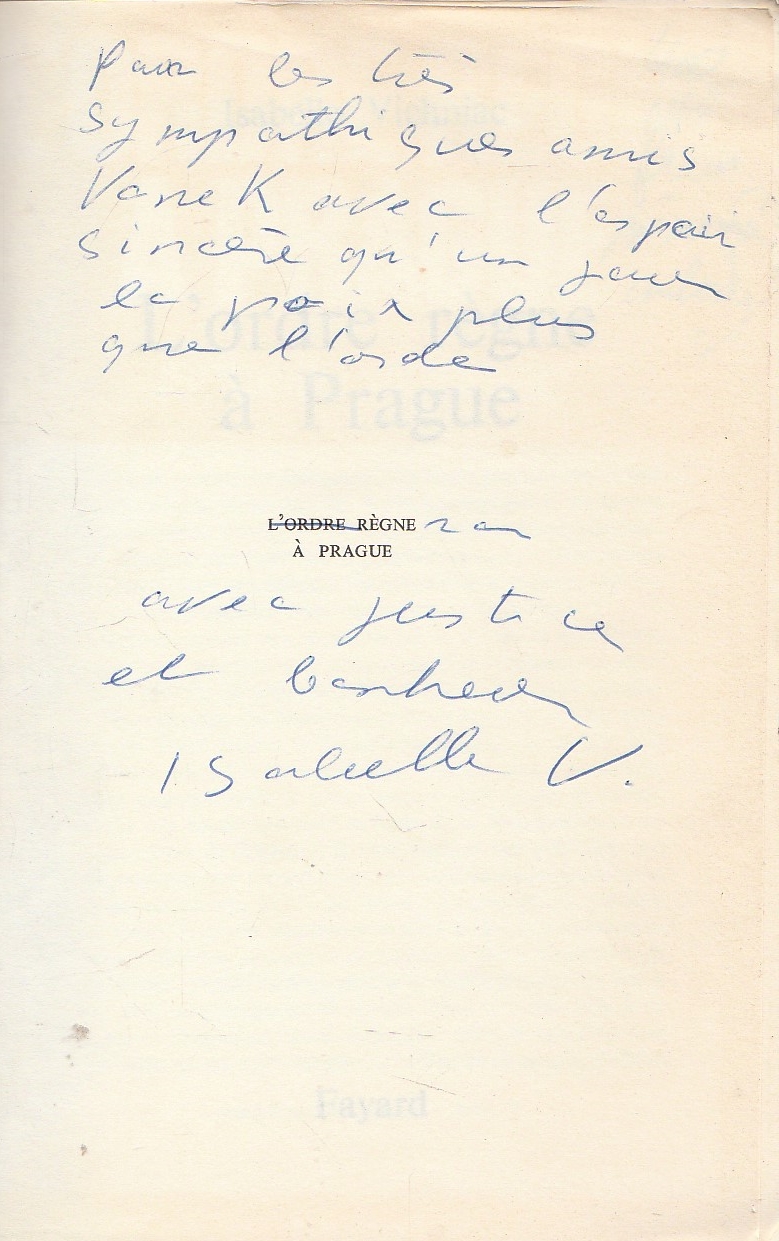 Pour les très
sympathiques amis
Vanek avec l'espoir
sincère qu'un jour
la paix plus
que l'orde
L'ORDRE RÈGNE ra
À PRAGUE
avec justice
et bonheur
Isabelle V.
L'ordre règne
à Prague
Fayard